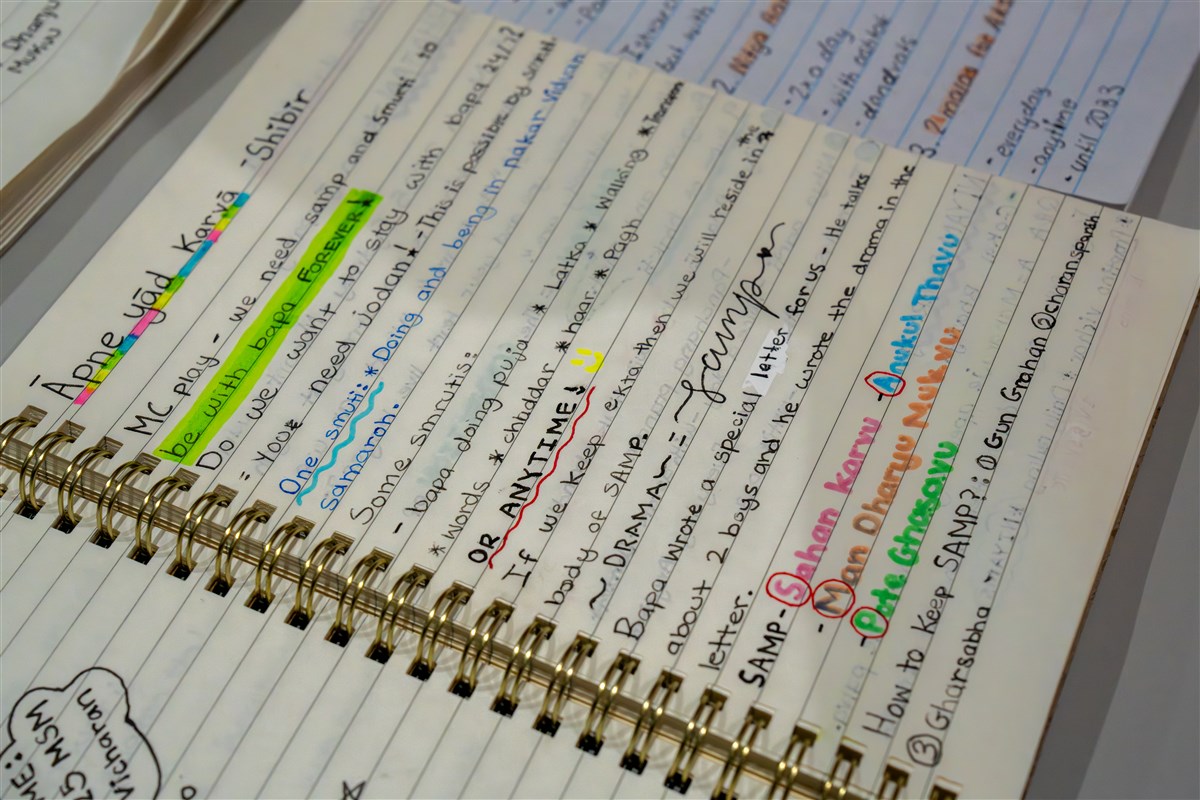 Āpne yād Karvā - Shibir
MC play - we need samp and smruti to
be with bapa FOREVER!
Do we want to stay with bapa 24/7?
= You need joddan! - This is possible by smruti
One smuti: * Doing and being in nakar Vidwan
samarah.
Some smrutis:
- bapa doing puja * Latka * Walking
* Words * chaddar * haar * Pagh
OR ANYTIME!
If we keep ekta then we will reside in the
body of SAMP.
~ DRAMA ~ = ~ Samp ~
Bapa wrote a special letter for us - He talks
about 2 boys and he wrote the drama in the
letter.
SAMP - Sahan karvu - Anukul Thavu
- Man Dharyu Mukvu
- Pote Ghasavu
How to keep SAMP?: ① Gun Grahan ② charansparsh
③ Gharsabha
Dharyu
Mukvu
but with
2. Nitya
- 2x a day
- with ashtak
- dandvats
3. 21 malas for
- everyday
- anytime
- until 2033
25 MSM
Vicharan